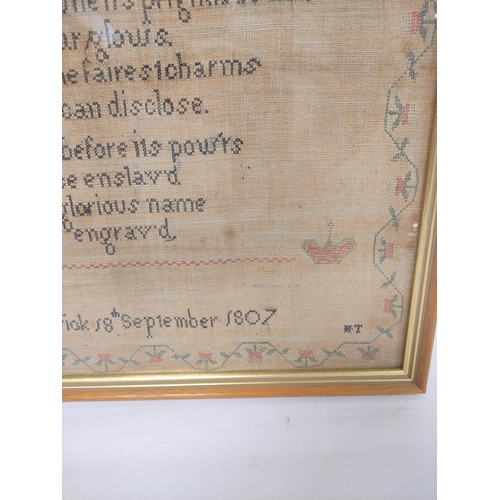 arglows.
faires1charms
can disclose.
before its pow'rs
enslav'd
glorious name
engrav'd
rick 18th September 1807